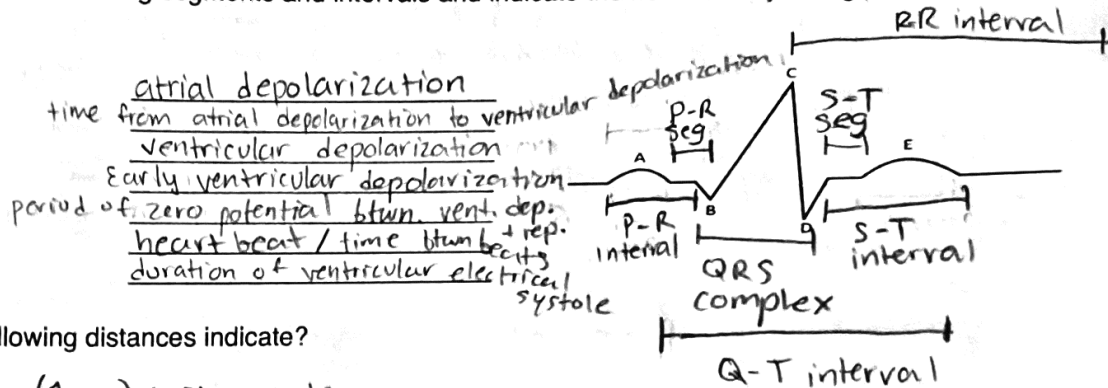 RR interval
atrial depolarization
time from atrial depolarization to ventricular depolarization
ventricular depolarization
Early ventricular depolarization
period of zero potential btwn. vent. dep. + rep.
heart beat / time btwn beats
duration of ventricular electrical systole
C
P-R seg
S-T seg
A
E
B
D
P-R interval
QRS complex
S-T interval
Q-T interval
llowing distances indicate?